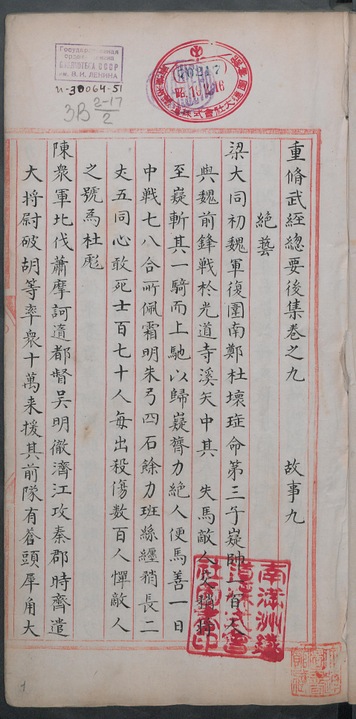 Государственная
ордена Ленина
БИБЛИОТЕКА СССР
им. В. И. ЛЕНИНА
И-30064-51
3В 2-17
2
76217
重脩武經總要後集卷之九 故事九
絶藝
梁大同初魏軍復圍南鄭杜懷珤命第三子嶷帥二百人
與魏前鋒戰於光道寺溪矢中其 失馬敵人
至嶷斬其一騎而上馳以歸嶷膂力絶人便馬善一日
中戦七八合所佩霜明朱弓四石餘力班絲纒矟長二
丈五同心敢死士百七十人每出殺傷数百人憚敵人
之號爲杜彪
陳衆軍北伐蕭摩訶遺都督吳明徹濟江攻秦郡時齊遣
大将尉破胡等率衆十萬来援其前隊有蒼頭犀角大
南滿洲鐵
道株式會
社圖書印
1